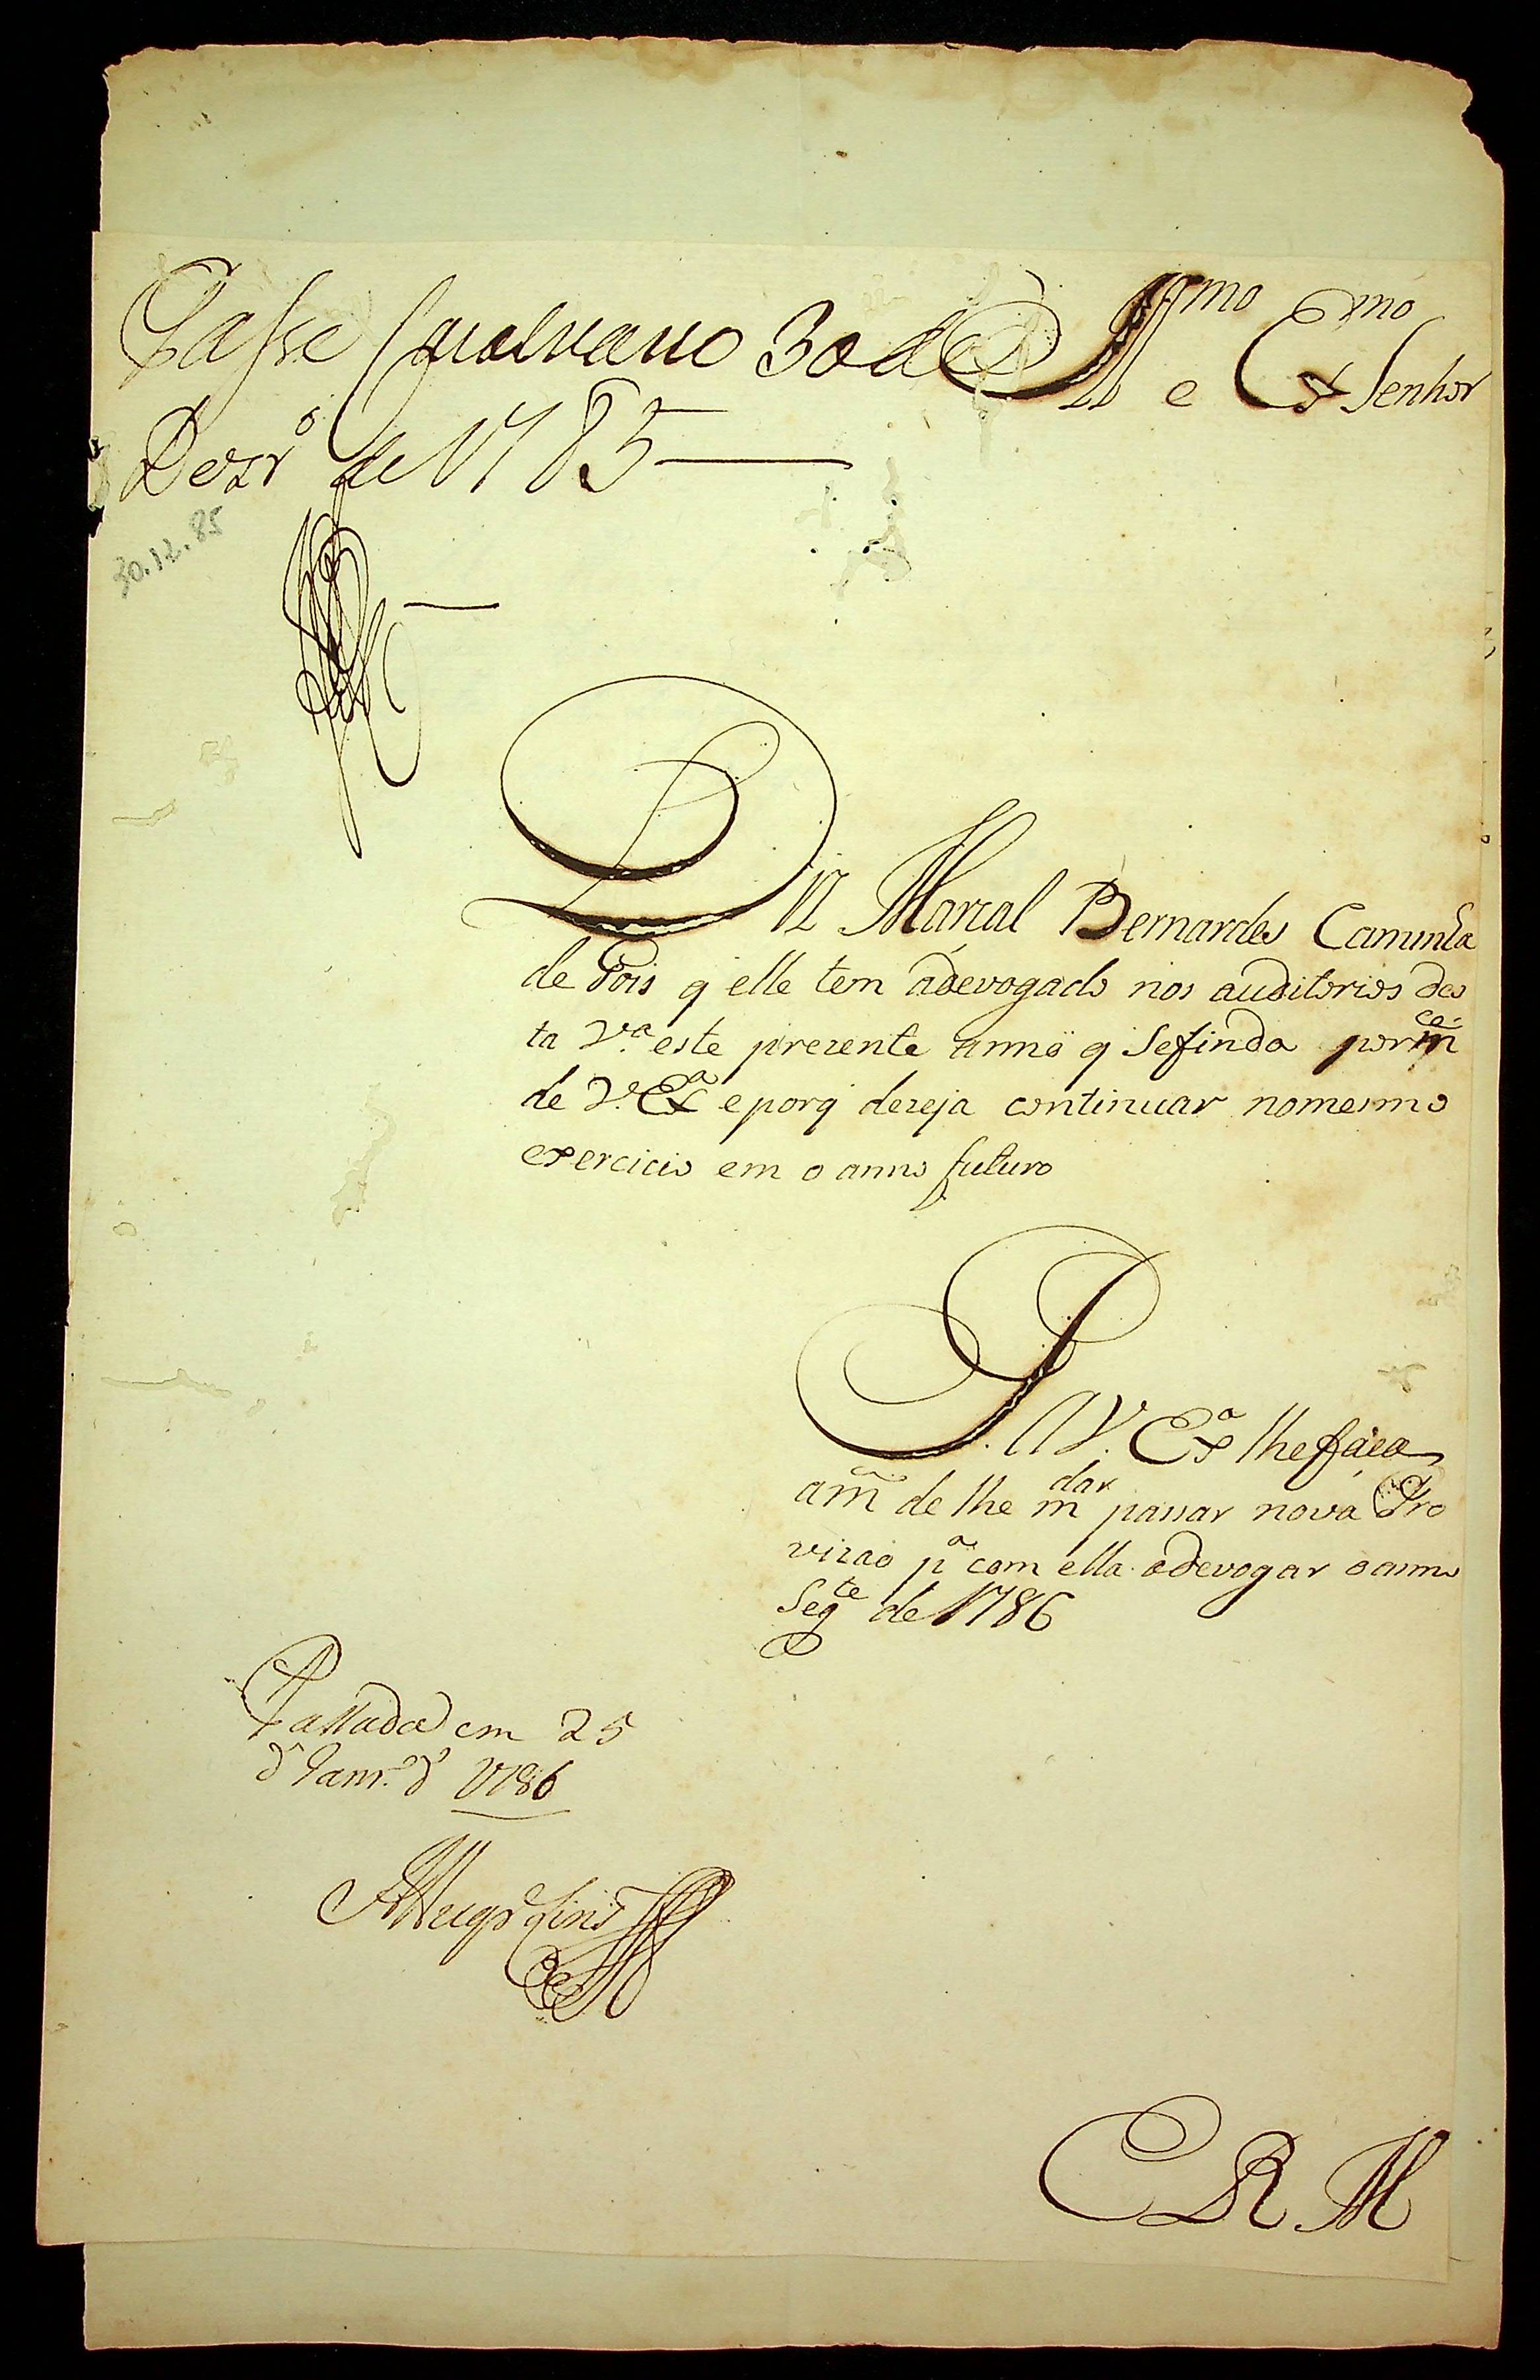 Illmo e Exmo Senhor
Passe 30 de
Dezrº de 1785
30.12.85
Diz Marcal Bernardes Caminha
de Gois q elle tem adevogado nos auditorios des
ta Vª este prezente anno q Sefinda por mce
de V. Exª e porq dezeja continuar nomesmo
exercicio em o anno futuro
P. A V. Exª lhe faça
a m de lhe mdar passar nova Pro
vizao pª com ella adevogar o anno
Segte de 1786
Passada em 25
d Janrº d 1786
E R M